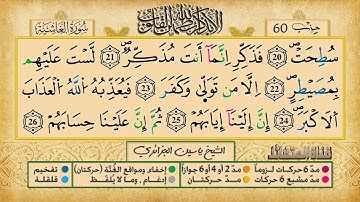 سُورَةُ الغَاشِيَةِ
ألا بذكر الله تطمئن القلوب
حزب 60
سُطِحَتْ 20 فَذَكِّرْ إِنَّمَآ أَنتَ مُذَكِّرٌ 21 لَّسْتَ عَلَيْهِم
بِمُصَيْطِرٍ 22 إِلَّا مَن تَوَلَّىٰ وَكَفَرَ 23 فَيُعَذِّبُهُ اللَّهُ الْعَذَابَ
الْأَكْبَرَ 24 إِنَّ إِلَيْنَآ إِيَابَهُمْ 25 ثُمَّ إِنَّ عَلَيْنَا حِسَابَهُم 26
الشيخ ياسين الجزائري
مدّ 6 حركات لزوماً مدّ 2 أو 4 أو 6 جوازاً إخفاء، ومواقع الغُنَّة (حركتان) تفخيم
مدّ مشبع 6 حركات مدّ حركتان إدغام، وما لا يُلفَظ قلقلة